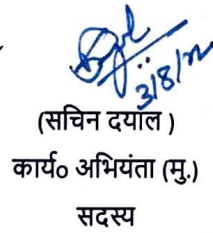 3/8/
(सचिन दयाल )
कार्य० अभियंता (मु.)
सदस्य